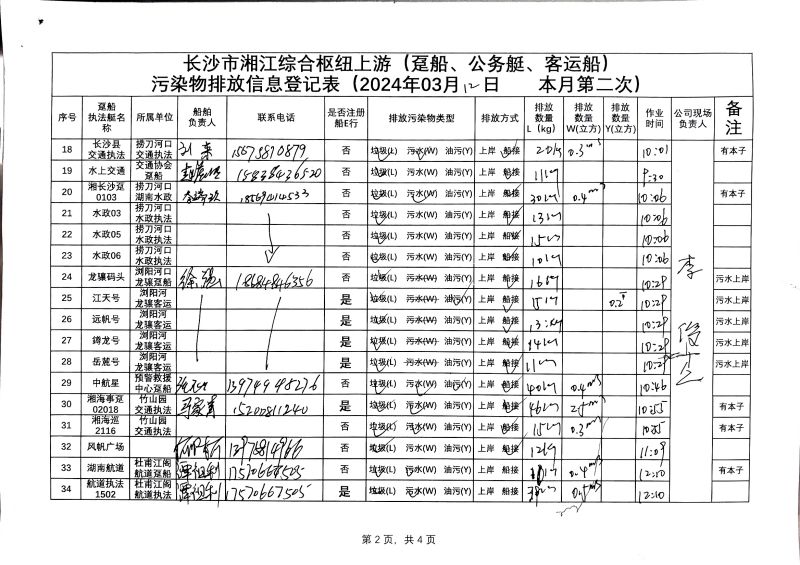 长沙市湘江综合枢纽上游（趸船、公务艇、客运船）
污染物排放信息登记表（2024年03月12日 本月第二次）
序号 趸船执法艇名称 所属单位 船舶负责人 联系电话 是否注册船E行 排放污染物类型 排放方式 排放数量L（kg） 排放数量W(立方) 排放数量Y(立方) 作业时间 公司现场负责人 备注
18 长沙县交通执法 捞刀河口交通执法 否 垃圾(L) 污水(W) 油污(Y) 上岸 船接 0.3m³ 10:01 有本子
19 水上交通 交通协会趸船 15838436520 否 垃圾(L) 污水(W) 油污(Y) 上岸 船接 11kg 9:30
20 湘长沙趸0103 捞刀河口湖南水政 否 垃圾(L) 污水(W) 油污(Y) 上岸 船接 30kg 0.4m³ 10:06 有本子
21 水政03 捞刀河口水政执法 否 垃圾(L) 污水(W) 油污(Y) 上岸 船接 13kg 10:06
22 水政05 捞刀河口水政执法 否 垃圾(L) 污水(W) 油污(Y) 上岸 船接 15kg 10:06
23 水政06 捞刀河口水政执法 否 垃圾(L) 污水(W) 油污(Y) 上岸 船接 10kg 10:06
24 龙骧码头 浏阳河口龙骧趸船 18684846356 否 垃圾(L) 污水(W) 油污(Y) 上岸 船接 16kg 10:29 污水上岸
25 江天号 浏阳河龙骧客运 是 垃圾(L) 污水(W) 油污(Y) 上岸 船接 15kg 10:29 污水上岸
26 远帆号 浏阳河龙骧客运 是 垃圾(L) 污水(W) 油污(Y) 上岸 船接 13kg 10:29 污水上岸
27 鹘龙号 浏阳河龙骧客运 是 垃圾(L) 污水(W) 油污(Y) 上岸 船接 14kg 10:29 污水上岸
28 岳麓号 浏阳河龙骧客运 是 垃圾(L) 污水(W) 油污(Y) 上岸 船接 11kg 10:29 污水上岸
29 中航星 预警救援中心趸船 13974998276 否 垃圾(L) 污水(W) 油污(Y) 上岸 船接 40kg 0.4m³ 10:46
30 湘海事趸02018 竹山园交通执法 15200811240 否 垃圾(L) 污水(W) 油污(Y) 上岸 船接 46kg 10:55 有本子
31 湘海巡2116 竹山园交通执法 否 垃圾(L) 污水(W) 油污(Y) 上岸 船接 15kg 0.3m³ 10:55 有本子
32 风帆广场 否 垃圾(L) 污水(W) 油污(Y) 上岸 船接 12kg 11:09
33 湖南航道 杜甫江阁航道趸船 17570667505 否 垃圾(L) 污水(W) 油污(Y) 上岸 船接 0.4m³ 12:10 有本子
34 航道执法1502 杜甫江阁航道执法 17570667505 是 垃圾(L) 污水(W) 油污(Y) 上岸 船接 12:10
第 2 页，共 4 页